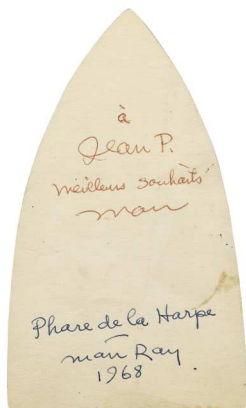 à
Jean P.
meilleurs souhaits
man
Phare de la Harpe
man Ray
1968